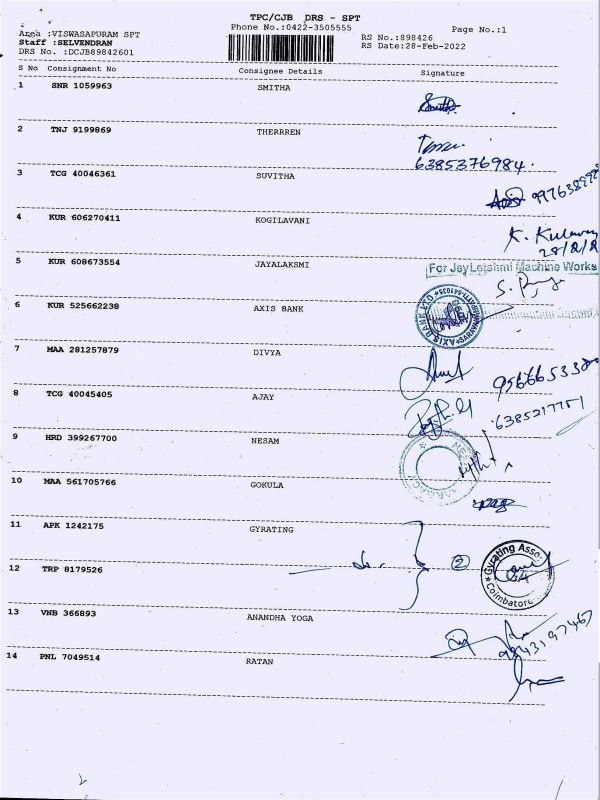 TPC/CJB DRS - SPT
Area :VISWASAPURAM SPT
Phone No.:0422-3505555
Page No.:1
Staff :SELVENDRAN
RS No.:898426
DRS No. :DCJB89842601
RS Date:28-Feb-2022
S No Consignment No Consignee Details Signature
1 SNR 1059963 SMITHA
Smitha
2 TNJ 9199869 THERRREN
6385376984.
3 TCG 40046361 SUVITHA
4 KUR 606270411 KOGILAVANI
K.
5 KUR 608673554 JAYALAKSMI
For JeyLakshmi Machine Works
6 KUR 525662238 AXIS BANK
AXIS BANK LTD
7 MAA 281257879 DIVYA
8 TCG 40045405 AJAY
9 HRD 399267700 NESAM
10 MAA 561705766 GOKULA
11 APK 1242175 GYRATING
2
Gyrating Asso
Coimbatore
12 TRP 8179526
13 VNB 366893 ANANDHA YOGA
14 PNL 7049514 RATAN